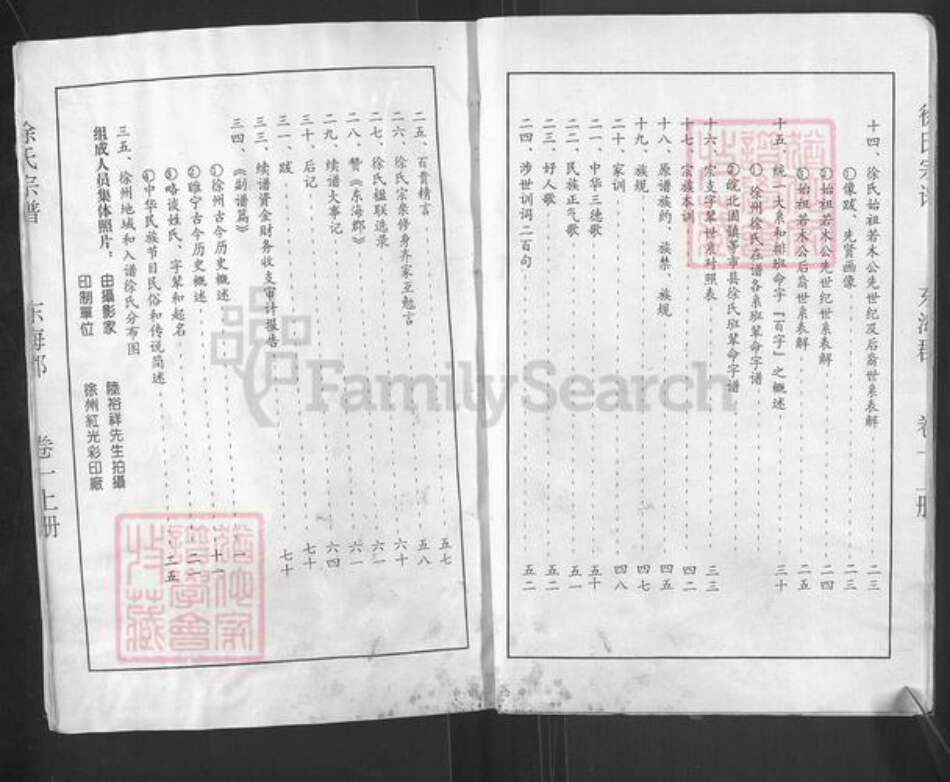 徐氏宗谱 东海郡 卷一上册
十四、徐氏始祖若木公先世纪及后裔世系表解 二三
①像跋、先贤画像 二三
②始祖若木公先世纪世系表解 二四
③始祖若木公后裔世系表解 二五
十五、统一大系和排班命字「百字」之概述 三十
①徐州徐氏在谱各系班辈命字谱
②皖北固镇等市县徐氏班辈命字谱
十六、宗支字辈世系对照表 三三
十七、宗族本训 四二
十八、原谱族约、族禁、族规 四五
十九、族规 四七
二十、家训 四八
二一、中华三德歌 五十
二二、民族正气歌 五一
二三、好人歌 五二
二四、涉世训词二百句 五二
二五、百贵精言 五七
二六、徐氏宗亲修身齐家互勉言 五八
二七、徐氏楹联选录 六十
二八、赞《东海郡》 六一
二九、续谱大事记 六四
三十、后记 七十
三一、跋 七十
三三、续谱资金财务收支审计报告
三四、《副谱篇》 一
①徐州古今历史概述 十一
②睢宁古今历史概述 二一
③略谈姓氏、字辈和起名 二五
④中华民族节日民俗和传说简述
三五、徐州地域和入谱徐氏分布图
组成人员集体照片：由攝影家 陸裕祥先生拍攝
印制單位 徐州紅光彩印廠
徐氏宗谱 东海郡 卷一上册
FamilySearch